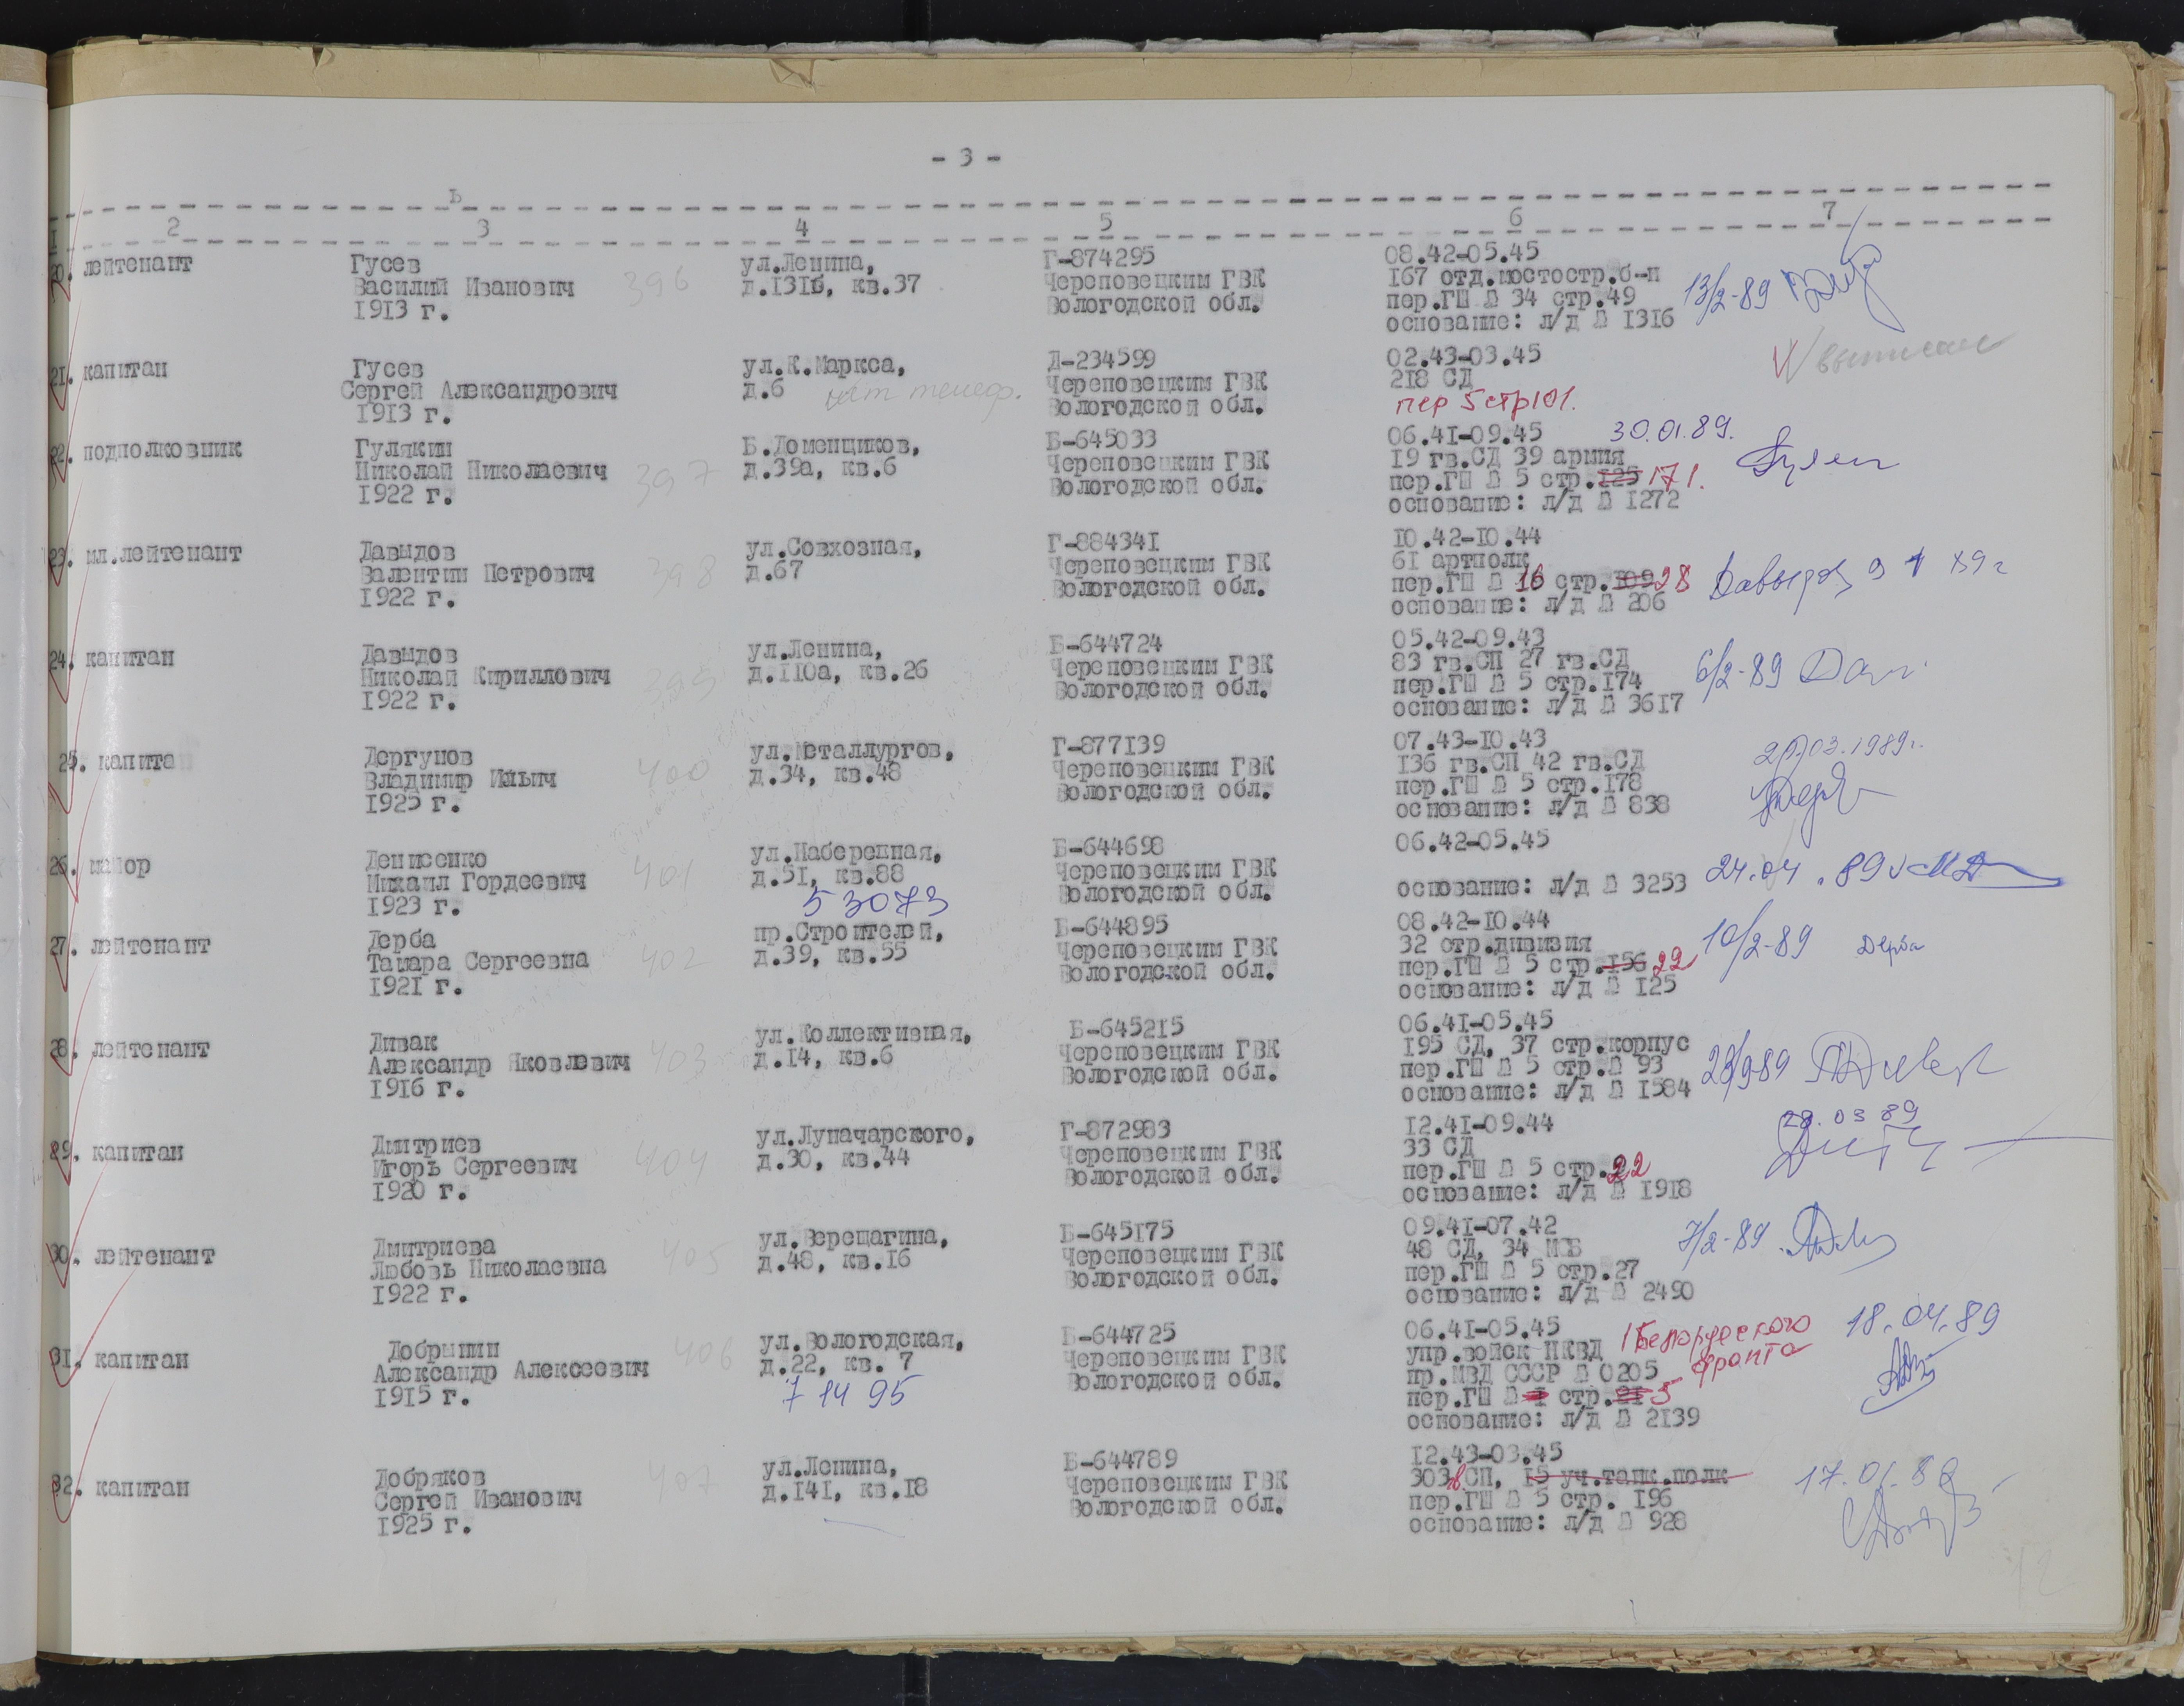 - 3 -
Б
I 2 3 4 5 6 7
20. лейтенант Гусев ул.Ленина, Г-874295 08.42-05.45
Василий Иванович 396 д.131б, кв.37 Череповецким ГВК 167 отд.мостостр.б-н 13/2-89
1913 г. Вологодской обл. пер.ГШ № 34 стр.49
основание: л/д № 1316
21. капитан Гусев ул.К.Маркса, Д-234599 02.43-03.45 V выписан
Сергей Александрович д.6 нет телеф. Череповецким ГВК 218 СД
1913 г. Вологодской обл. пер 5 стр 101.
22. подполковник Гулякин Б.Доменщиков, Б-645033 06.41-09.45 30.01.89.
Николай Николаевич 397 д.39а, кв.6 Череповецким ГВК 19 гв.СД 39 армия
1922 г. Вологодской обл. пер.ГШ № 5 стр.125 171.
основание: л/д № 1272
23. мл.лейтенант Давыдов ул.Совхозная, Г-884341 10.42-10.44
Валентин Петрович 398 д.67 Череповецким ГВК 61 артполк
1922 г. Вологодской обл. пер.ГШ № 16 стр.109 28 Давыдов 9 1 89г
основание: л/д № 206
24. капитан Давыдов ул.Ленина, Б-644724 05.42-09.43
Николай Кириллович 399 д.110а, кв.26 Череповецким ГВК 83 гв.СП 27 гв.СД 6/2-89
1922 г. Вологодской обл. пер.ГШ № 5 стр.174
основание: л/д № 3617
25. капита Дергунов ул.Металлургов, Г-877139 07.43-10.43
Владимир Ильич 400 д.34, кв.48 Череповецким ГВК 136 гв.СП 42 гв.СД 03.1989г.
1925 г. Вологодской обл. пер.ГШ № 5 стр.178
основание: л/д № 838
26. майор Денисенко ул.Набережная, Б-644698 06.42-05.45
Михаил Гордеевич 401 д.51, кв.88 Череповецким ГВК
1923 г. 53073 Вологодской обл. основание: л/д № 3253 24.04.89
27. лейтенант Дерба пр.Строителей, Б-644895 08.42-10.44
Тамара Сергеевна 402 д.39, кв.55 Череповецким ГВК 32 стр.дивизия 10/2-89 Дерба
1921 г. Вологодской обл. пер.ГШ № 5 стр.156 22
основание: л/д № 125
28. лейтенант Дивак ул.Коллективная, Б-645215 06.41-05.45
Александр Яковлевич 403 д.14, кв.6 Череповецким ГВК 195 СД, 37 стр.корпус
1916 г. Вологодской обл. пер.ГШ № 5 стр.№ 93
основание: л/д № 1584
29. капитан Дмитриев ул.Луначарского, Г-872983 12.41-09.44 28.03 89
Игорь Сергеевич 404 д.30, кв.44 Череповецким ГВК 33 СД
1920 г. Вологодской обл. пер.ГШ № 5 стр.22
основание: л/д № 1918
30. лейтенант Дмитриева ул.Верещагина, Б-645175 09.41-07.42
Любовь Николаевна 405 д.48, кв.16 Череповецким ГВК 48 СД, 34 МСБ 7/2-89
1922 г. Вологодской обл. пер.ГШ № 5 стр.27
основание: л/д № 2490
31. капитан Добрынин ул.Вологодская, Б-644725 06.41-05.45 1 Белорусского 18.04.89
Александр Алексеевич 406 д.22, кв. 7 Череповецким ГВК упр.войск НКВД фронта
1915 г. 7 14 95 Вологодской обл. пр.МВД СССР № 0205
пер.ГШ № 1 стр.21 5
основание: л/д № 2139
32. капитан Добряков ул.Ленина, Б-644789 12.43-03.45
Сергей Иванович 407 д.141, кв.18 Череповецким ГВК 303 СП, 15 уч.танк.полк 17.01.89
1925 г. Вологодской обл. пер.ГШ № 5 стр. 196
основание: л/д № 928
12